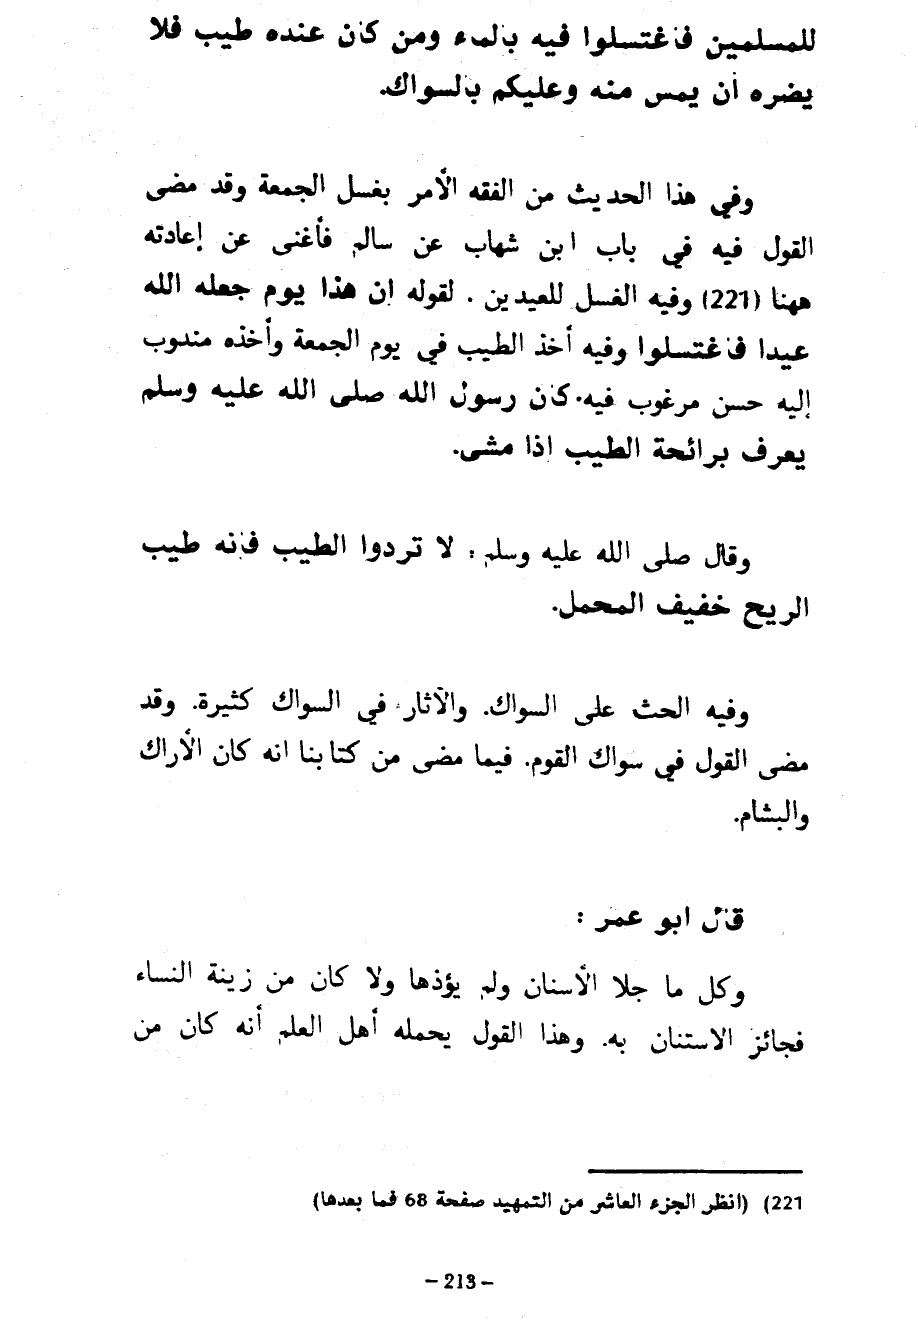 للمسلمين فاغتسلوا فيه بالماء ومن كان عنده طيب فلا
يضره أن يمس منه وعليكم بالسواك.
وفي هذا الحديث من الفقه الأمر بغسل الجمعة وقد مضى
القول فيه في باب ابن شهاب عن سالم فأغنى عن إعادته
ههنا (221) وفيه الغسل للعيدين . لقوله ان هذا يوم جعله الله
عيدا فاغتسلوا وفيه أخذ الطيب في يوم الجمعة وأخذه مندوب
إليه حسن مرغوب فيه. كان رسول الله صلى الله عليه وسلم
يعرف برائحة الطيب اذا مشى.
وقال صلى الله عليه وسلم : لا تردوا الطيب فإنه طيب
الريح خفيف المحمل.
وفيه الحث على السواك. والآثار في السواك كثيرة. وقد
مضى القول في سواك القوم. فيما مضى من كتابنا انه كان الأراك
والبشام.
قال ابو عمر :
وكل ما جلا الأسنان ولم يؤذها ولا كان من زينة النساء
فجائز الاستنان به. وهذا القول يحمله أهل العلم أنه كان من
221) (انظر الجزء العاشر من التمهيد صفحة 68 فما بعدها)
– 213 –